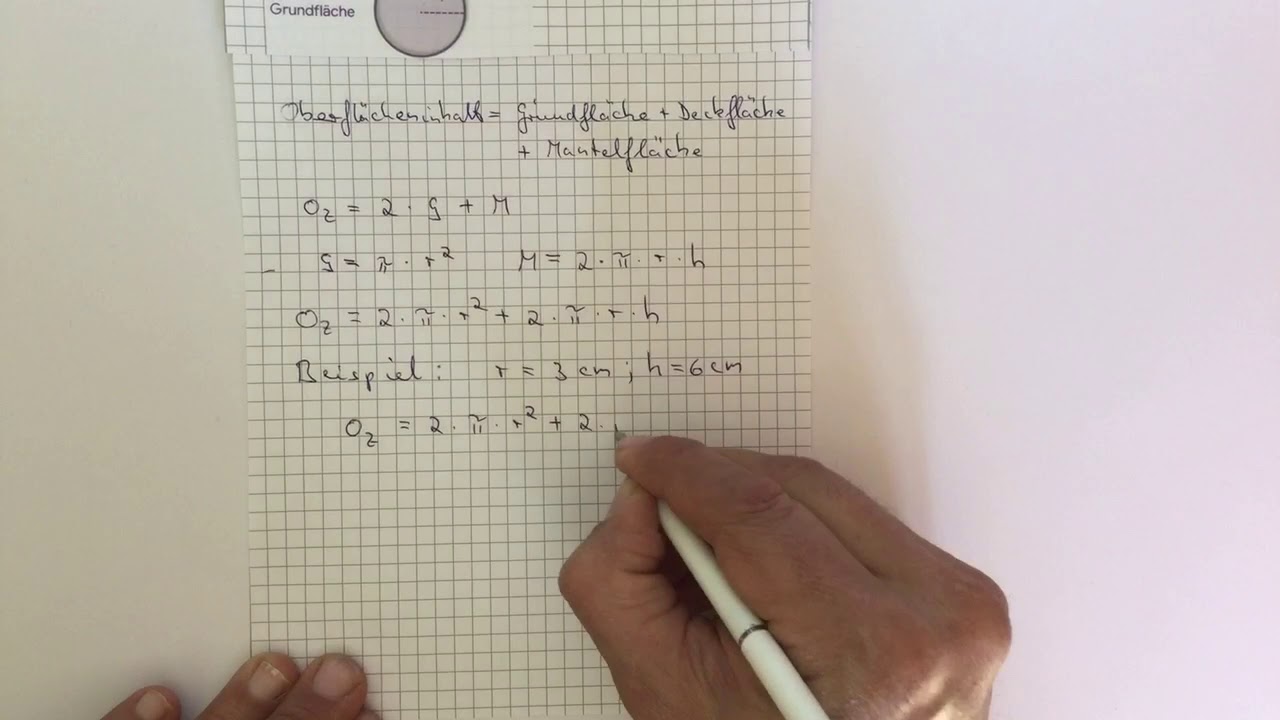 Grundfläche
Oberflächeninhalt = Grundfläche + Deckfläche
+ Mantelfläche
O_Z = 2 · G + M
G = π · r² M = 2 · π · r · h
O_Z = 2 · π · r² + 2 · π · r · h
Beispiel: r = 3 cm ; h = 6 cm
O_Z = 2 · π · r² + 2 ·